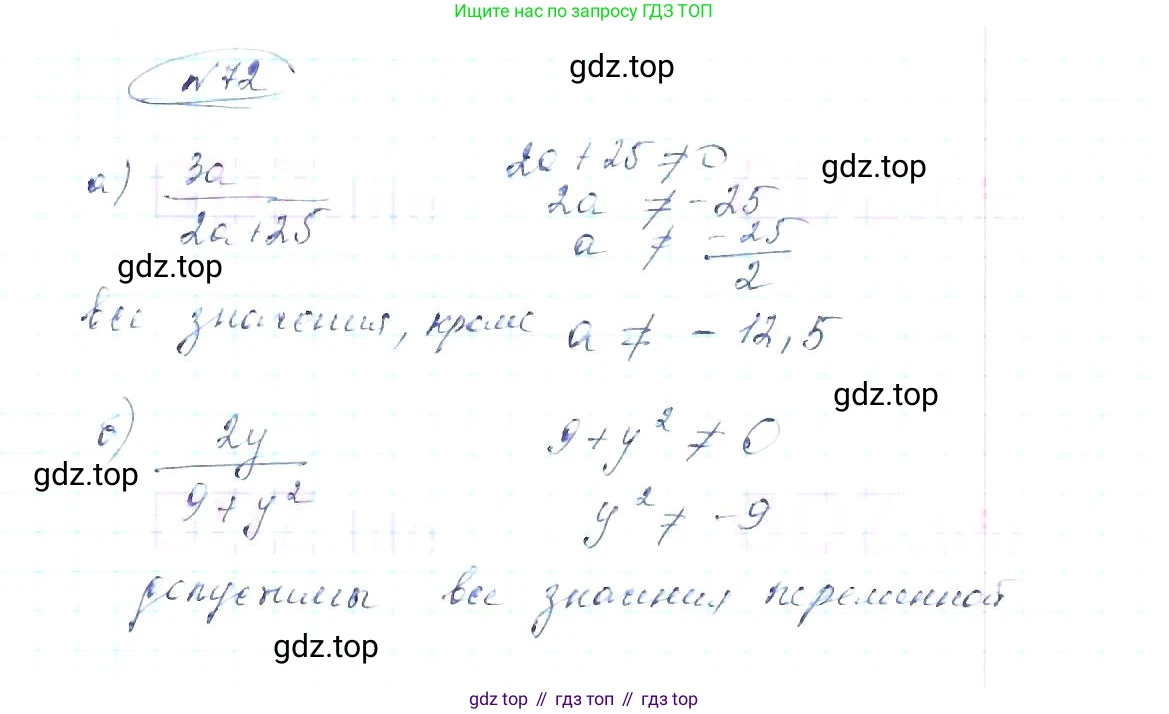 Ищите нас по запросу ГДЗ ТОП
№72
gdz.top
а) 3a / 2a+25
2a + 25 ≠ 0
gdz.top
2a ≠ -25
a ≠ -25/2
gdz.top
все значения, кроме a ≠ - 12,5
gdz.top
б) 2y / 9+y²
9+y² ≠ 0
gdz.top
y² ≠ -9
допустимы все значения переменной
gdz.top
gdz top // гдз топ // гдз top